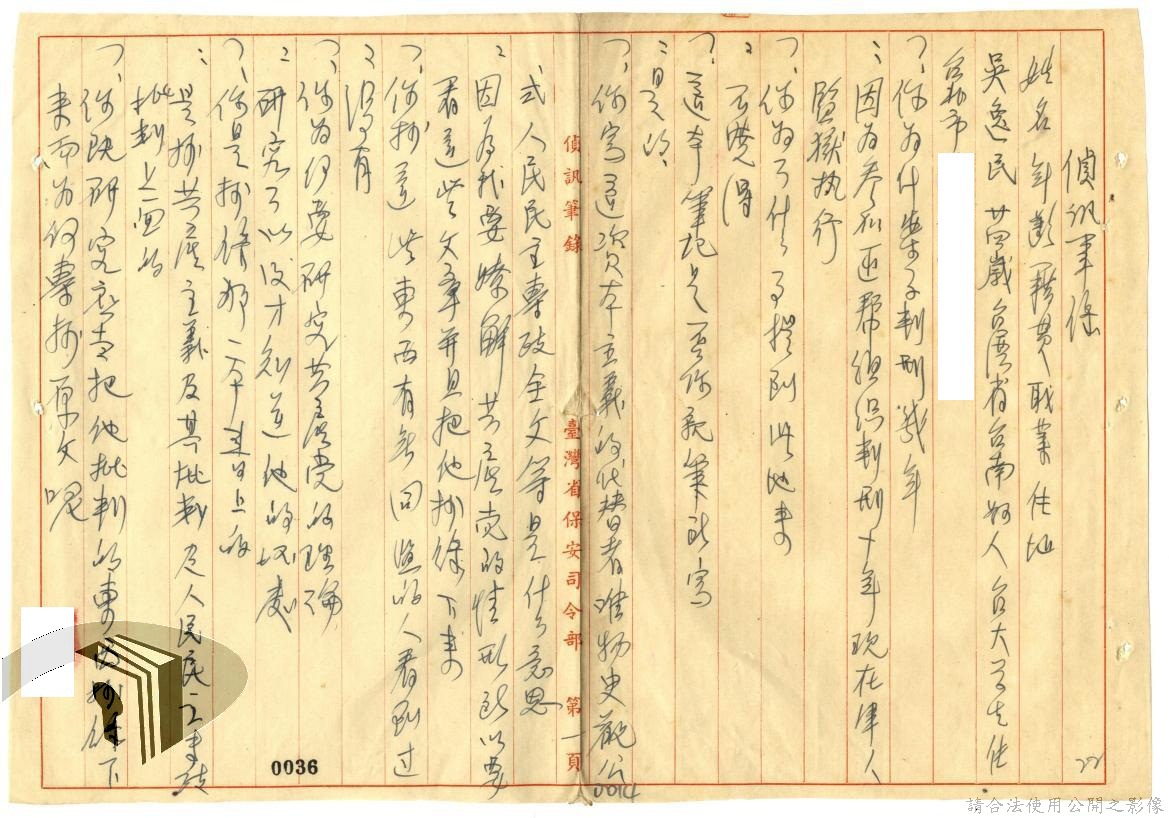 偵訊筆錄
姓名 年齡 籍貫 職業 住址
吳逸民 廿四歲 台灣省台南縣人 台大學生 住
台北市
問、你為什案子判刑幾年
答：因為參加匪幫組織判刑十年現在軍人
監獄執行
問、你為了什么事提到此地來
答 不曉得
問、這本筆記是否你親筆所寫
答：是的
問、你寫這 資本主義的代替者唯物史觀公
偵訊筆錄 臺灣省保安司令部 第一頁
式人民民主專政全文等是什么意思
答 因為我要瞭解共產党的情形所以要
看這些文章并且把他抄錄下來
問、你抄這些東西有無同監的人看到过
答 沒有
問、你為何要研究共產党的理論
答 研究了以後才知道他的壞處
問、你是抄錄那一本書上的
答：是抄共產主義及其批判及人民民主專政
批判上面的
問、你既研究應該把他批判的東西抄錄下
來而為何專抄原文呢
0036
0014
請合法使用公開之影像